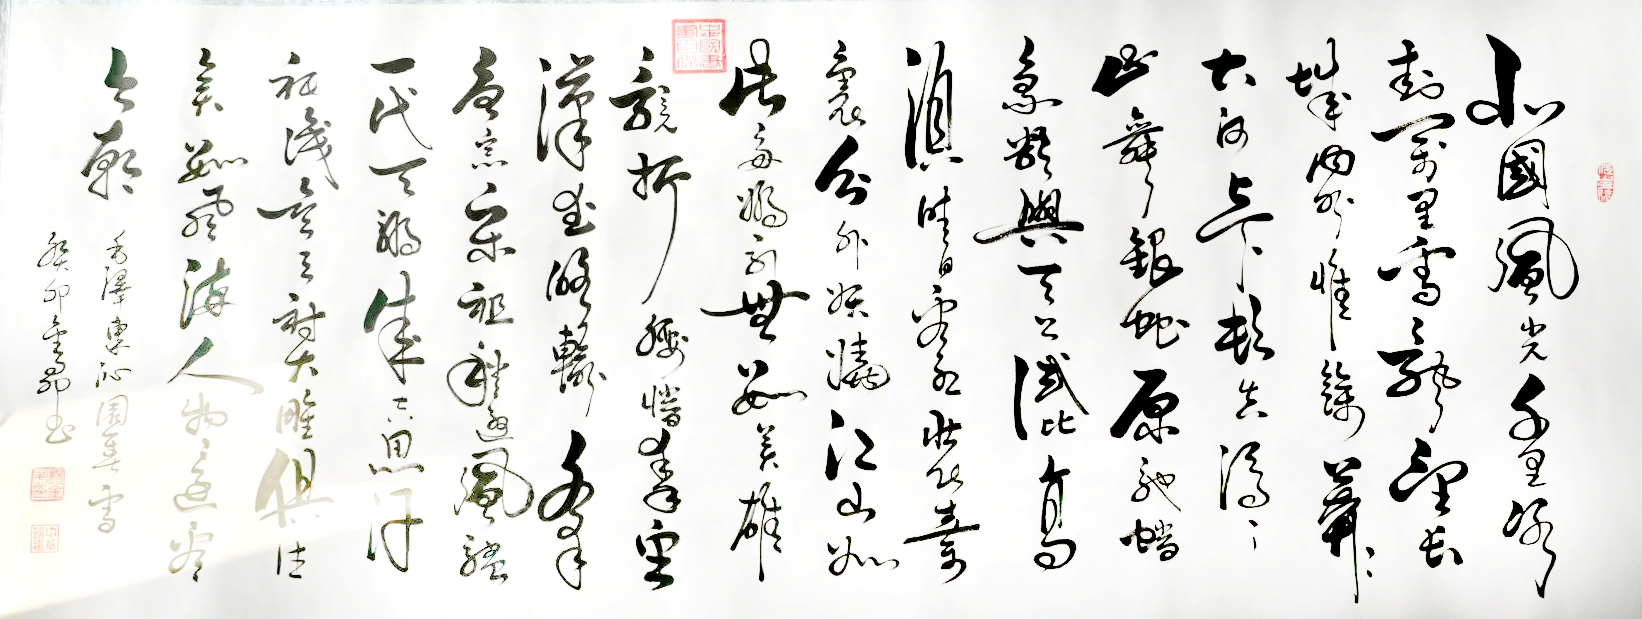 北國風光千里冰
封萬里雪飄望長
城內外惟餘莽々
大河上下頓失滔々
山舞銀蛇原馳蠟
象欲與天公試比高
須晴日看紅裝素
裹分外妖嬈江山如
此多嬌引無數英雄
競折腰惜秦皇
漢武略輸文采
唐宗宋祖稍遜風騷
一代天驕成吉思汗
祇識彎弓射大雕俱往
矣數風流人物還看
今朝
毛澤東沁園春雪
癸卯